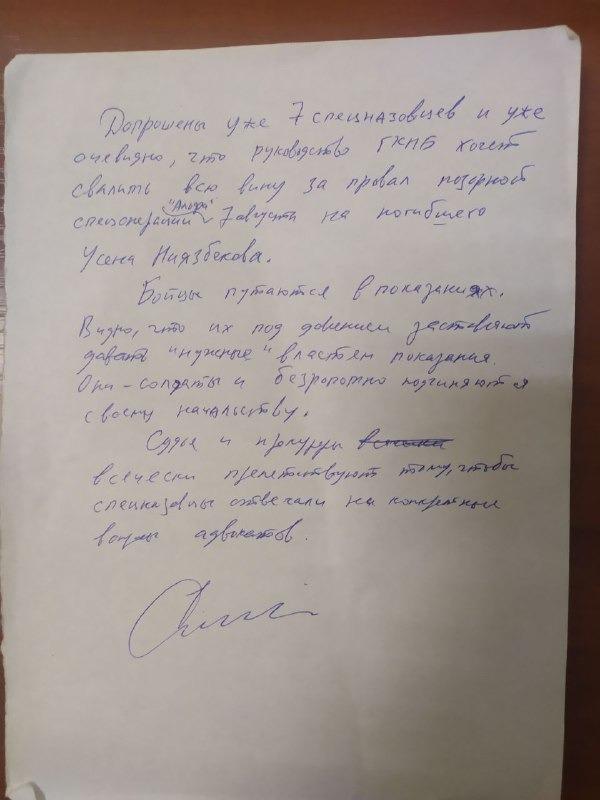 Допрошены уже 7 спецназовцев и уже
очевидно, что руководство ГКНБ хочет
свалить всю вину за провал позорной
спецоперации "Альфа" 7 августа на погибшего
Усена Ниязбекова.
Бойцы путаются в показаниях.
Видно, что их под давлением заставляют
давать "нужные" властям показания.
Они – солдаты и безропотно подчиняются
своему начальству.
Судья и прокуроры
всячески препятствуют тому, чтобы
спецназовцы отвечали на конкретные
вопросы адвокатов.